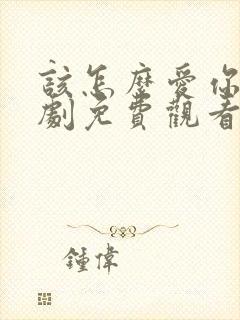 該怎麼愛你
劇免費觀看
鍾偉